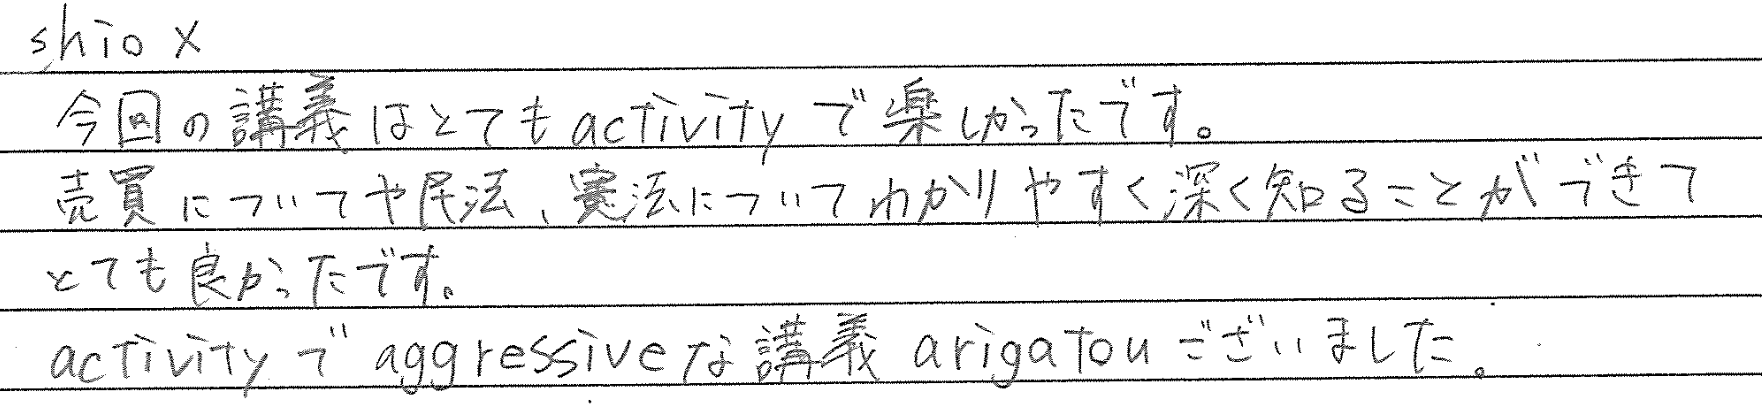 shio x
今回の講義はとてもactivityで楽しかったです。
売買についてや民法、憲法についてわかりやすく深く知ることができて
とても良かったです。
activityでaggressiveな講義arigatouございました。